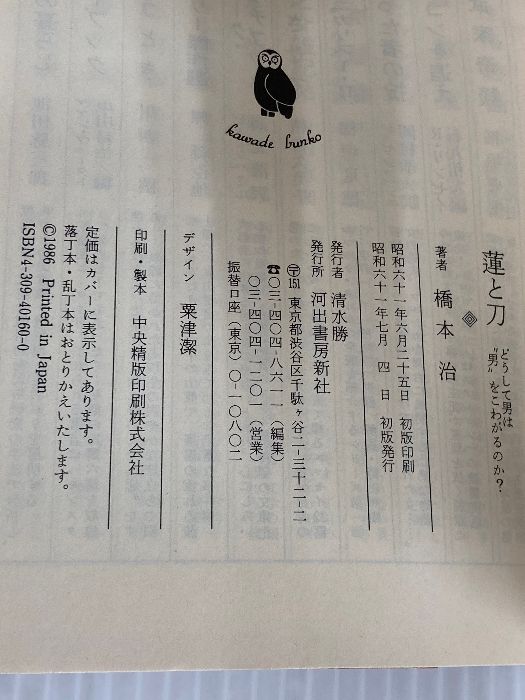 kawade bunko
蓮と刀
どうして男は
“男”をこわがるのか?
著者 橋本 治
昭和六十一年六月二十五日 初版印刷
昭和六十一年七月 四 日 初版発行
発行者 清水勝
発行所 河出書房新社
〒151 東京都渋谷区千駄ヶ谷二-三十二-二
☎〇三-四〇四-八六一一(編集)
〇三-四〇四-一二〇一(営業)
振替口座(東京)〇-一〇八〇二
デザイン 粟津潔
印刷・製本 中央精版印刷株式会社
定価はカバーに表示してあります。
落丁本・乱丁本はおとりかえいたします。
©1986 Printed in Japan
ISBN4-309-40160-0